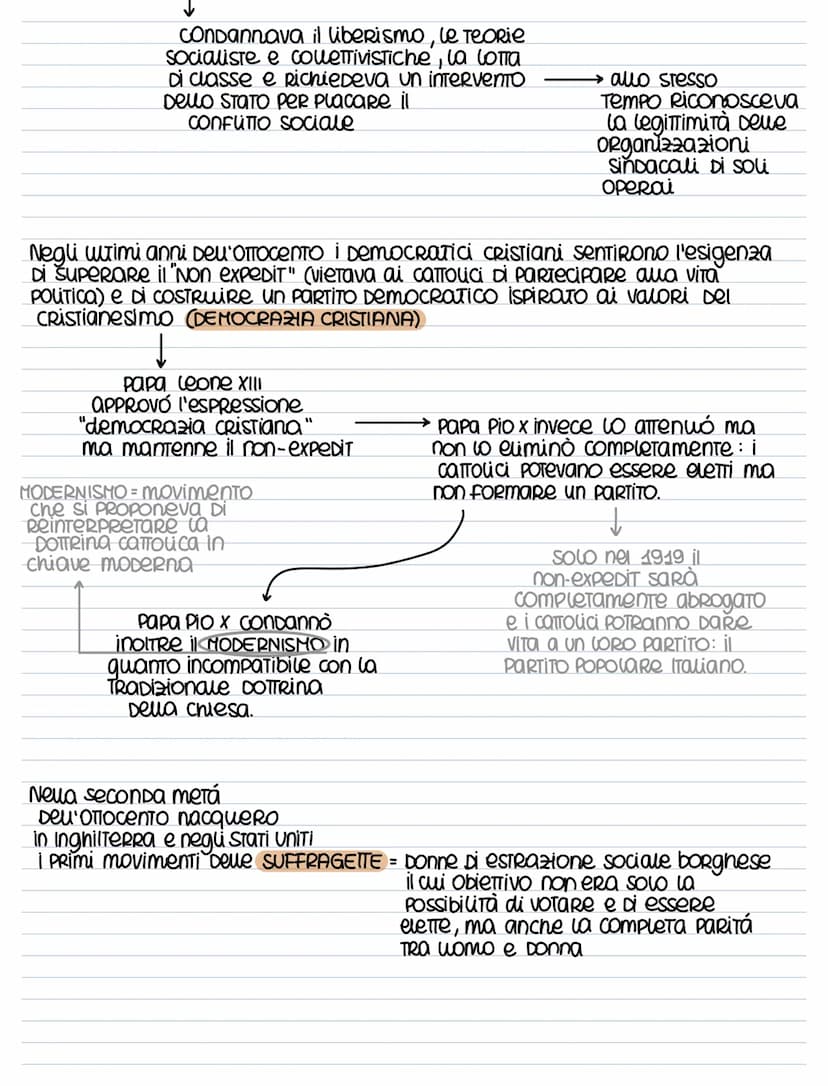 condannava il liberismo, le teorie
socialiste e collettivistiche, la lotta
di classe e richiedeva un intervento
dello stato per placare il
conflitto sociale
allo stesso
tempo riconosceva
la legittimità delle
organizzazioni
sindacali di soli
operai
Negli ultimi anni dell'ottocento i democratici cristiani sentirono l'esigenza
di superare il "non expedit" (vietava ai cattolici di partecipare alla vita
politica) e di costruire un partito democratico ispirato ai valori del
cristianesimo (DEMOCRAZIA CRISTIANA)
papa leone XIII
approvó l'espressione
"democrazia cristiana"
ma mantenne il non-expedit
papa pio x invece lo attenuó ma
non lo eliminò completamente: i
cattolici potevano essere eletti ma
non formare un partito.
MODERNISMO = movimento
che si proponeva di
reinterpretare la
dottrina cattolica in
chiave moderna
solo nel 1919 il
non-expedit sarà
completamente abrogato
e i cattolici potranno dare
vita a un loro partito: il
partito popolare italiano.
papa pio x condannò
inoltre il MODERNISMO in
quanto incompatibile con la
tradizionale dottrina
della chiesa.
Nella seconda metá
dell'ottocento nacquero
in inghilterra e negli stati uniti
i primi movimenti delle SUFFRAGETTE = donne di estrazione sociale borghese
il cui obiettivo non era solo la
possibilità di votare e di essere
elette, ma anche la completa paritá
tra uomo e donna